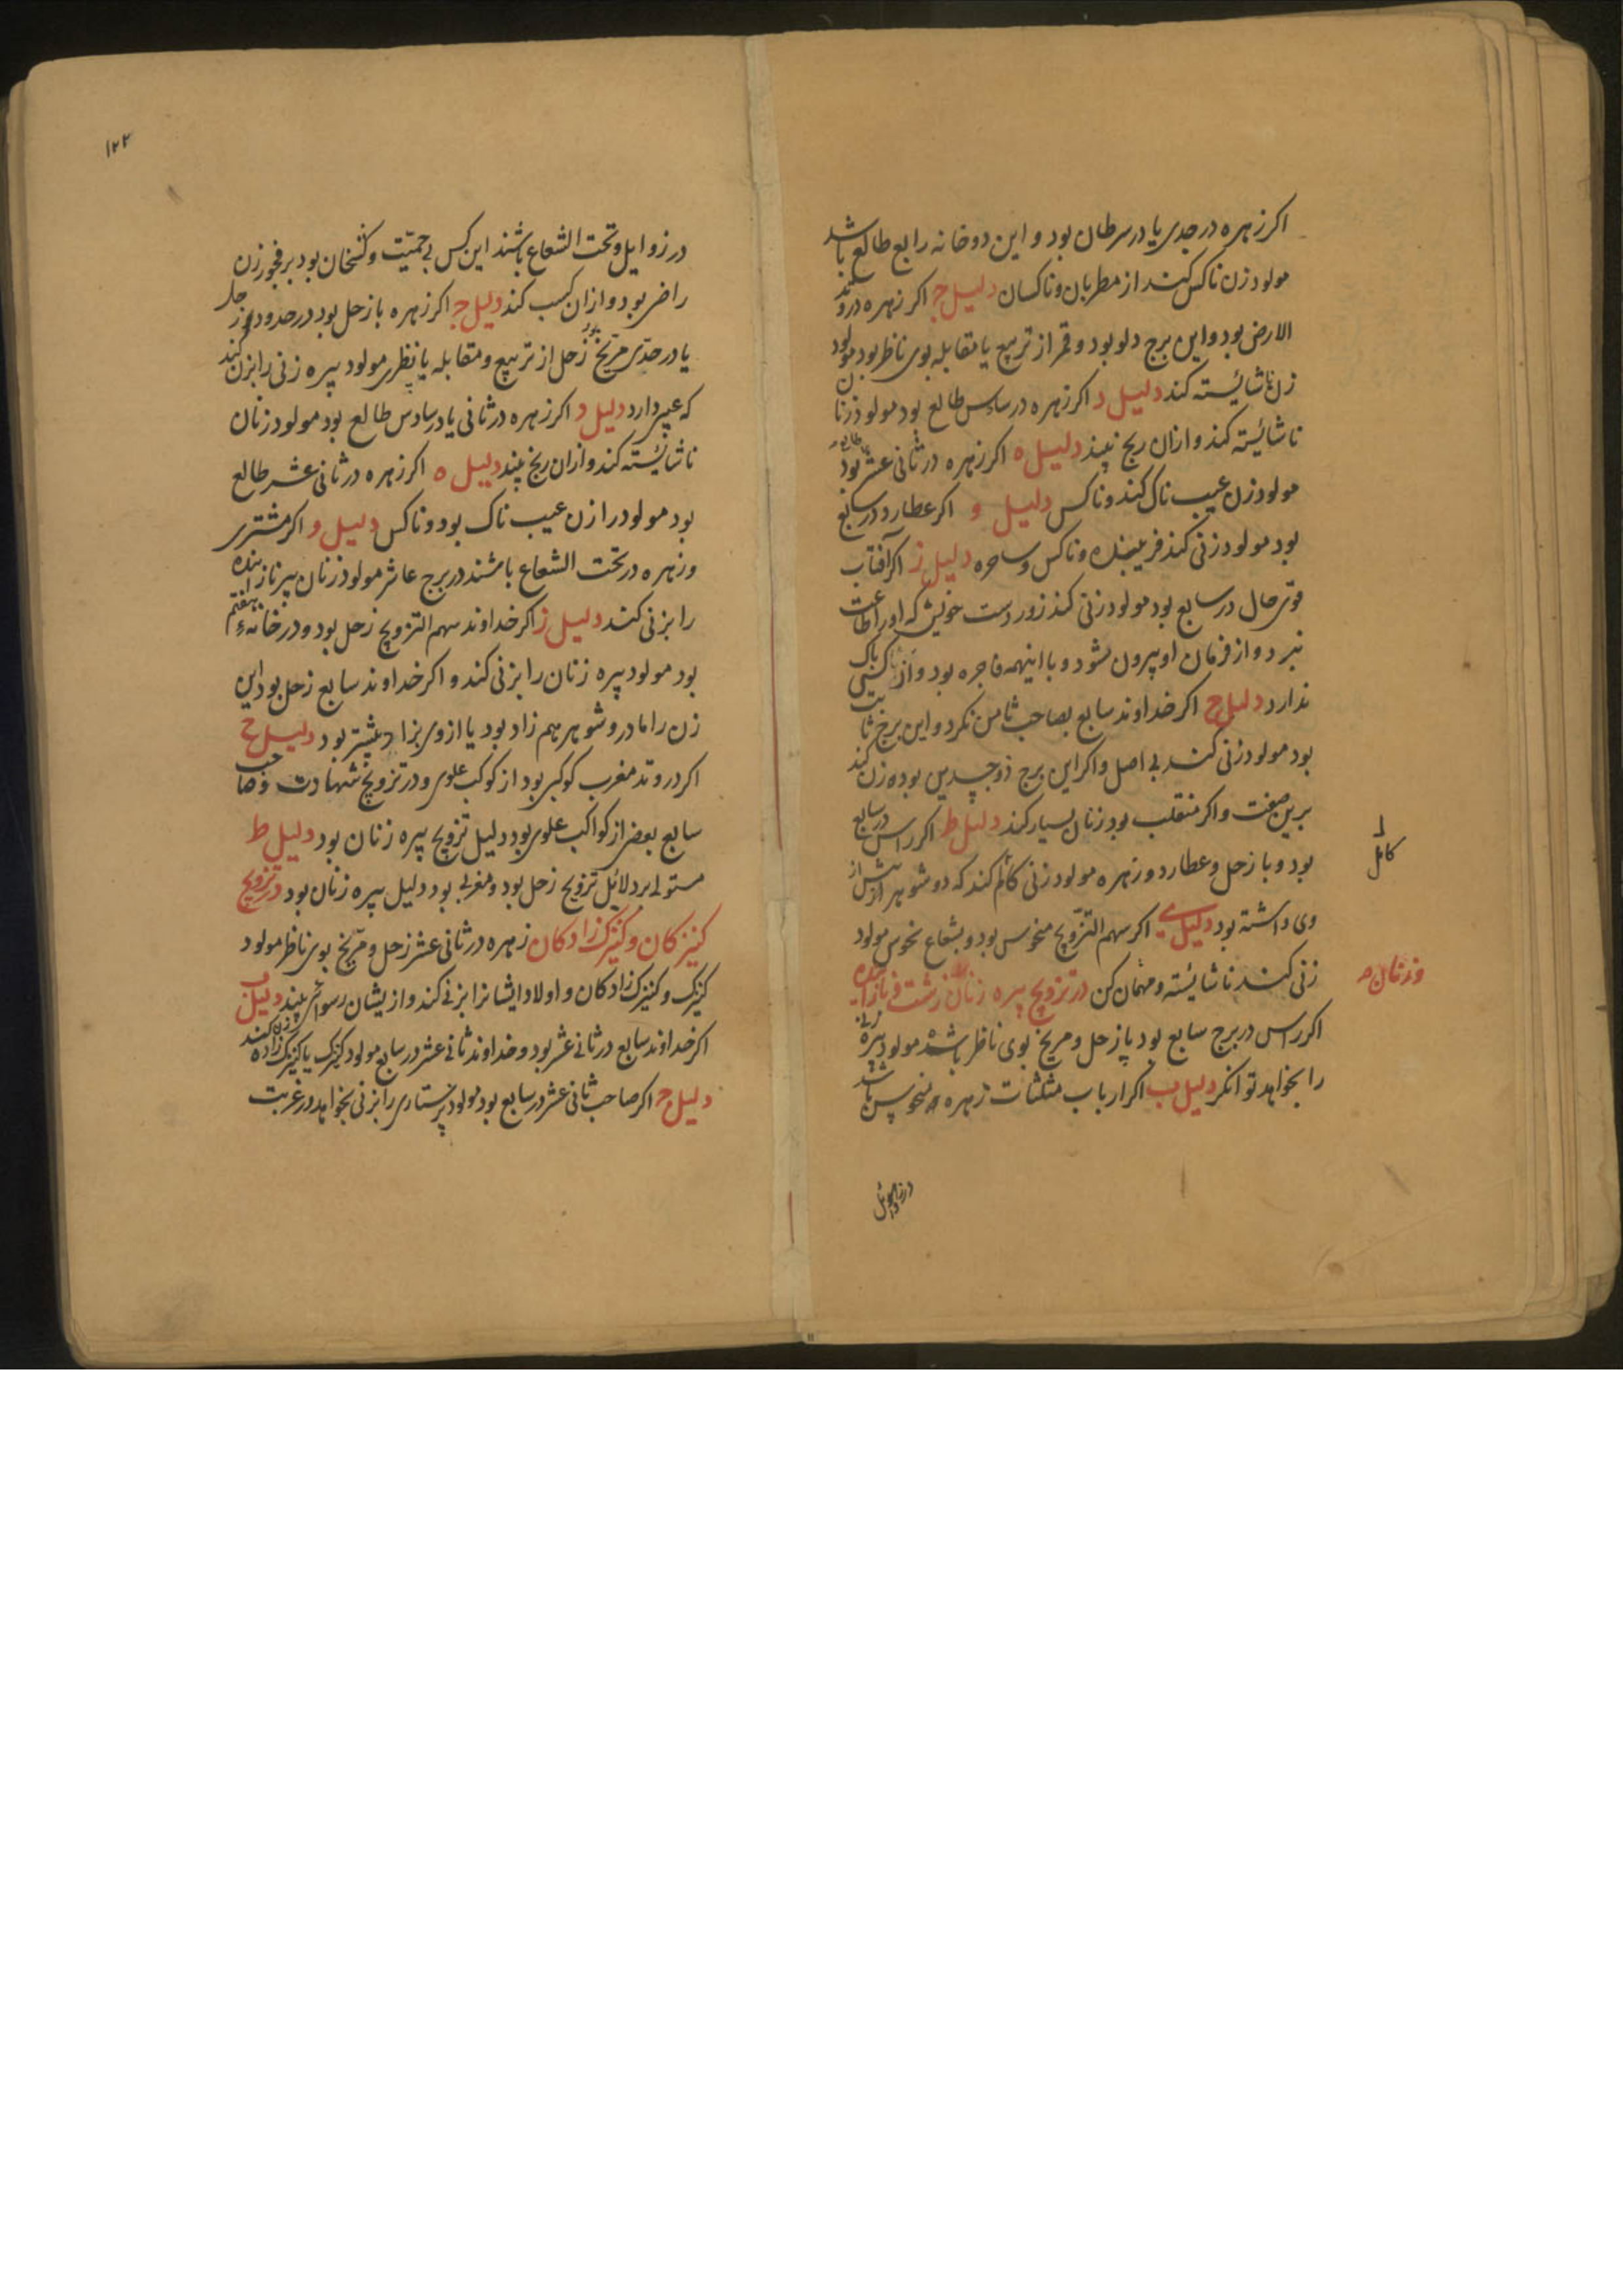 اکر زهره در جدی یا در سرطان بود و این دو خانه رابع طالع باشد
مولود زن ناکس کند از مطربان و ناکسان دلیل ج اکر زهره در وتد
الارض بود و این برج دلو بود و قمر از تربیع یا مقابله بوی ناظر بود مولود
زن ناشائیسته کند دلیل د اکر زهره در سادس طالع بود مولود زنان
ناشائیسته کند و ازان رنج بیند دلیل ه اکر زهره در ثانی عشر طالع بود
مولود زن عیب ناک کند و ناکس دلیل و اکر عطارد در سابع
بود مولود زنی کند فریبنده و ناکس و ساحره دلیل ز اکر آفتاب
قوی حال در سابع بود مولود زنی کند زور دست خویش که او را طاعت
نبرد و از فرمان او بیرون شود و با اینهمه فاجره بود و از کسی باک
ندارد دلیل ح اکر خداوند سابع بصاحب ثامن نکرد و این برج ثابت
بود مولود زنی کند بی اصل و اکر این برج ذوجسدین بوده زن کند
برین صفت و اکر منقلب بود زنان بسیار کند دلیل ط اکر راس در سابع
بود و با زحل و عطارد و زهره مولود زنی کند که دو شوهر از پیش از
وی داشته بود دلیل ی اکر سهم التزویج منحوس بود و بشعاع نحوس مولود
زنی کند ناشائیسته و مهمان کن در تزویج پیره زنان زشت و نازاینده
اکر راس در برج سابع بود یا زحل و مریخ بوی ناظر باشد مولود پیره زنی
را بخواهد توانکر دلیل ب اکر ارباب مثلثات زهره منحوس باشند
کامل
و زنان
در زوایل
۱۲۲
در زوایل و تحت الشعاع باشند این کس بی حمیّت و کشخان بود بر فجور زن
راضی بود و ازان کسب کند دلیل ج اکر زهره با زحل بود در حدود زحل
یا در حدّ مریخ بود زحل از تربیع و مقابله یا نظری مولود پیره زنی را بزن کند
که عیب دارد دلیل د اکر زهره در ثانی یا در سادس طالع بود مولود زنان
ناشائیسته کند و ازان رنج بیند دلیل ه اکر زهره در ثانی عشر طالع
بود مولود را زن عیب ناک بود و ناکس دلیل و اکر مشتری
و زهره در تحت الشعاع باشند در برج عاشر مولود زنان پیر نازاینده
را بزنی کند دلیل ز اکر خداوند سهم التزویج زحل بود و در خانهٔ هفتم
بود مولود پیره زنان را بزنی کند و اکر خداوند سابع زحل بود این
زن را مادر و شوهر هم زاد بود یا ازوی بزاد بیشتر بود دلیل ح
اکر در وتد مغرب کوکبی بود از کوکب علوی و در تزویج شهادت و صاحب
سابع بعضی از کواکب علوی بود دلیل تزویج پیره زنان بود دلیل ط
مستولی بر دلائل تزویج زحل بود و مغربی بود دلیل پیره زنان بود در تزویج
کنیزکان و کنیزک زادکان زهره در ثانی عشر زحل و مریخ بوی ناظر مولود
کنیزک و کنیزک زادکان و اولاد ایشانرا بزنی کند و از یشان رسوائی بیند دلیل ب
اکر خداوند سابع در ثانی عشر بود و خداوند ثانی عشر در سابع مولود کنیزک یا کنیزک زاده زن کند
دلیل ج اکر صاحب ثانی عشر در سابع بود مولود پرستاری را بزنی بخواهد در غربت